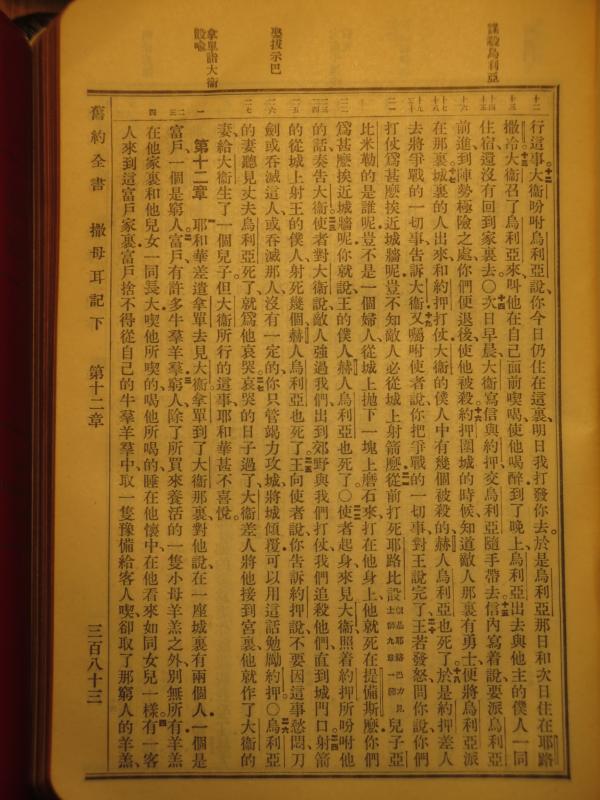 謀殺烏利亞
娶拔示巴
拿單詣大衛
設喻
行這事大衛吩咐烏利亞說你今日仍住在這裏明日我打發你去於是烏利亞那日和次日住在耶路
撒冷大衛召了烏利亞來叫他在自己面前喫喝使他喝醉到了晚上烏利亞出去與他主的僕人一同
住宿還沒有回到家裏去○次日早晨大衛寫信與約押交烏利亞隨手帶去信內寫着說要派烏利亞
前進到陣勢極險之處你們便退後使他被殺約押圍城的時候知道敵人那裏有勇士便將烏利亞派
在那裏城裏的人出來和約押打仗大衛的僕人中有幾個被殺的赫人烏利亞也死了於是約押差人
去將爭戰的一切事告訴大衛又囑咐使者說你把爭戰的一切事對王說完了王若發怒問你說你們
打仗爲甚麼挨近城牆呢豈不知敵人必從城上射箭麼從前打死耶路比設兒子亞
比米勒的是誰呢豈不是一個婦人從城上拋下一塊上磨石來打在他身上他就死在提備斯麼你們
爲甚麼挨近城牆呢你就說王的僕人赫人烏利亞也死了○使者起身來見大衛照着約押所吩咐他
的話奏告大衛使者對大衛說敵人強過我們出到郊野與我們打仗我們追殺他們直到城門口射箭
的從城上射王的僕人射死幾個赫人烏利亞也死了王向使者說你告訴約押說不要因這事愁悶刀
劍或吞滅這人或吞滅那人沒有一定的你只管竭力攻城將城傾覆可以用這話勉勵約押○烏利亞
的妻聽見丈夫烏利亞死了就爲他哀哭哀哭的日子過了大衛差人將他接到宮裏他就作了大衛的
妻給大衛生了一個兒子但大衛所行的這事耶和華甚不喜悅
第十二章 耶和華差遣拿單去見大衛拿單到了大衛那裏對他說在一座城裏有兩個人一個是
富戶一個是窮人富戶有許多牛羣羊羣窮人除了所買來養活的一隻小母羊羔之外別無所有羊羔
在他家裏和他兒女一同長大喫他所喫的喝他所喝的睡在他懷中在他看來如同女兒一樣有一客
人來到這富戶家裏富戶捨不得從自己的牛羣羊羣中取一隻豫備給客人喫卻取了那窮人的羊羔
舊約全書 撒母耳記下 第十二章 三百八十三